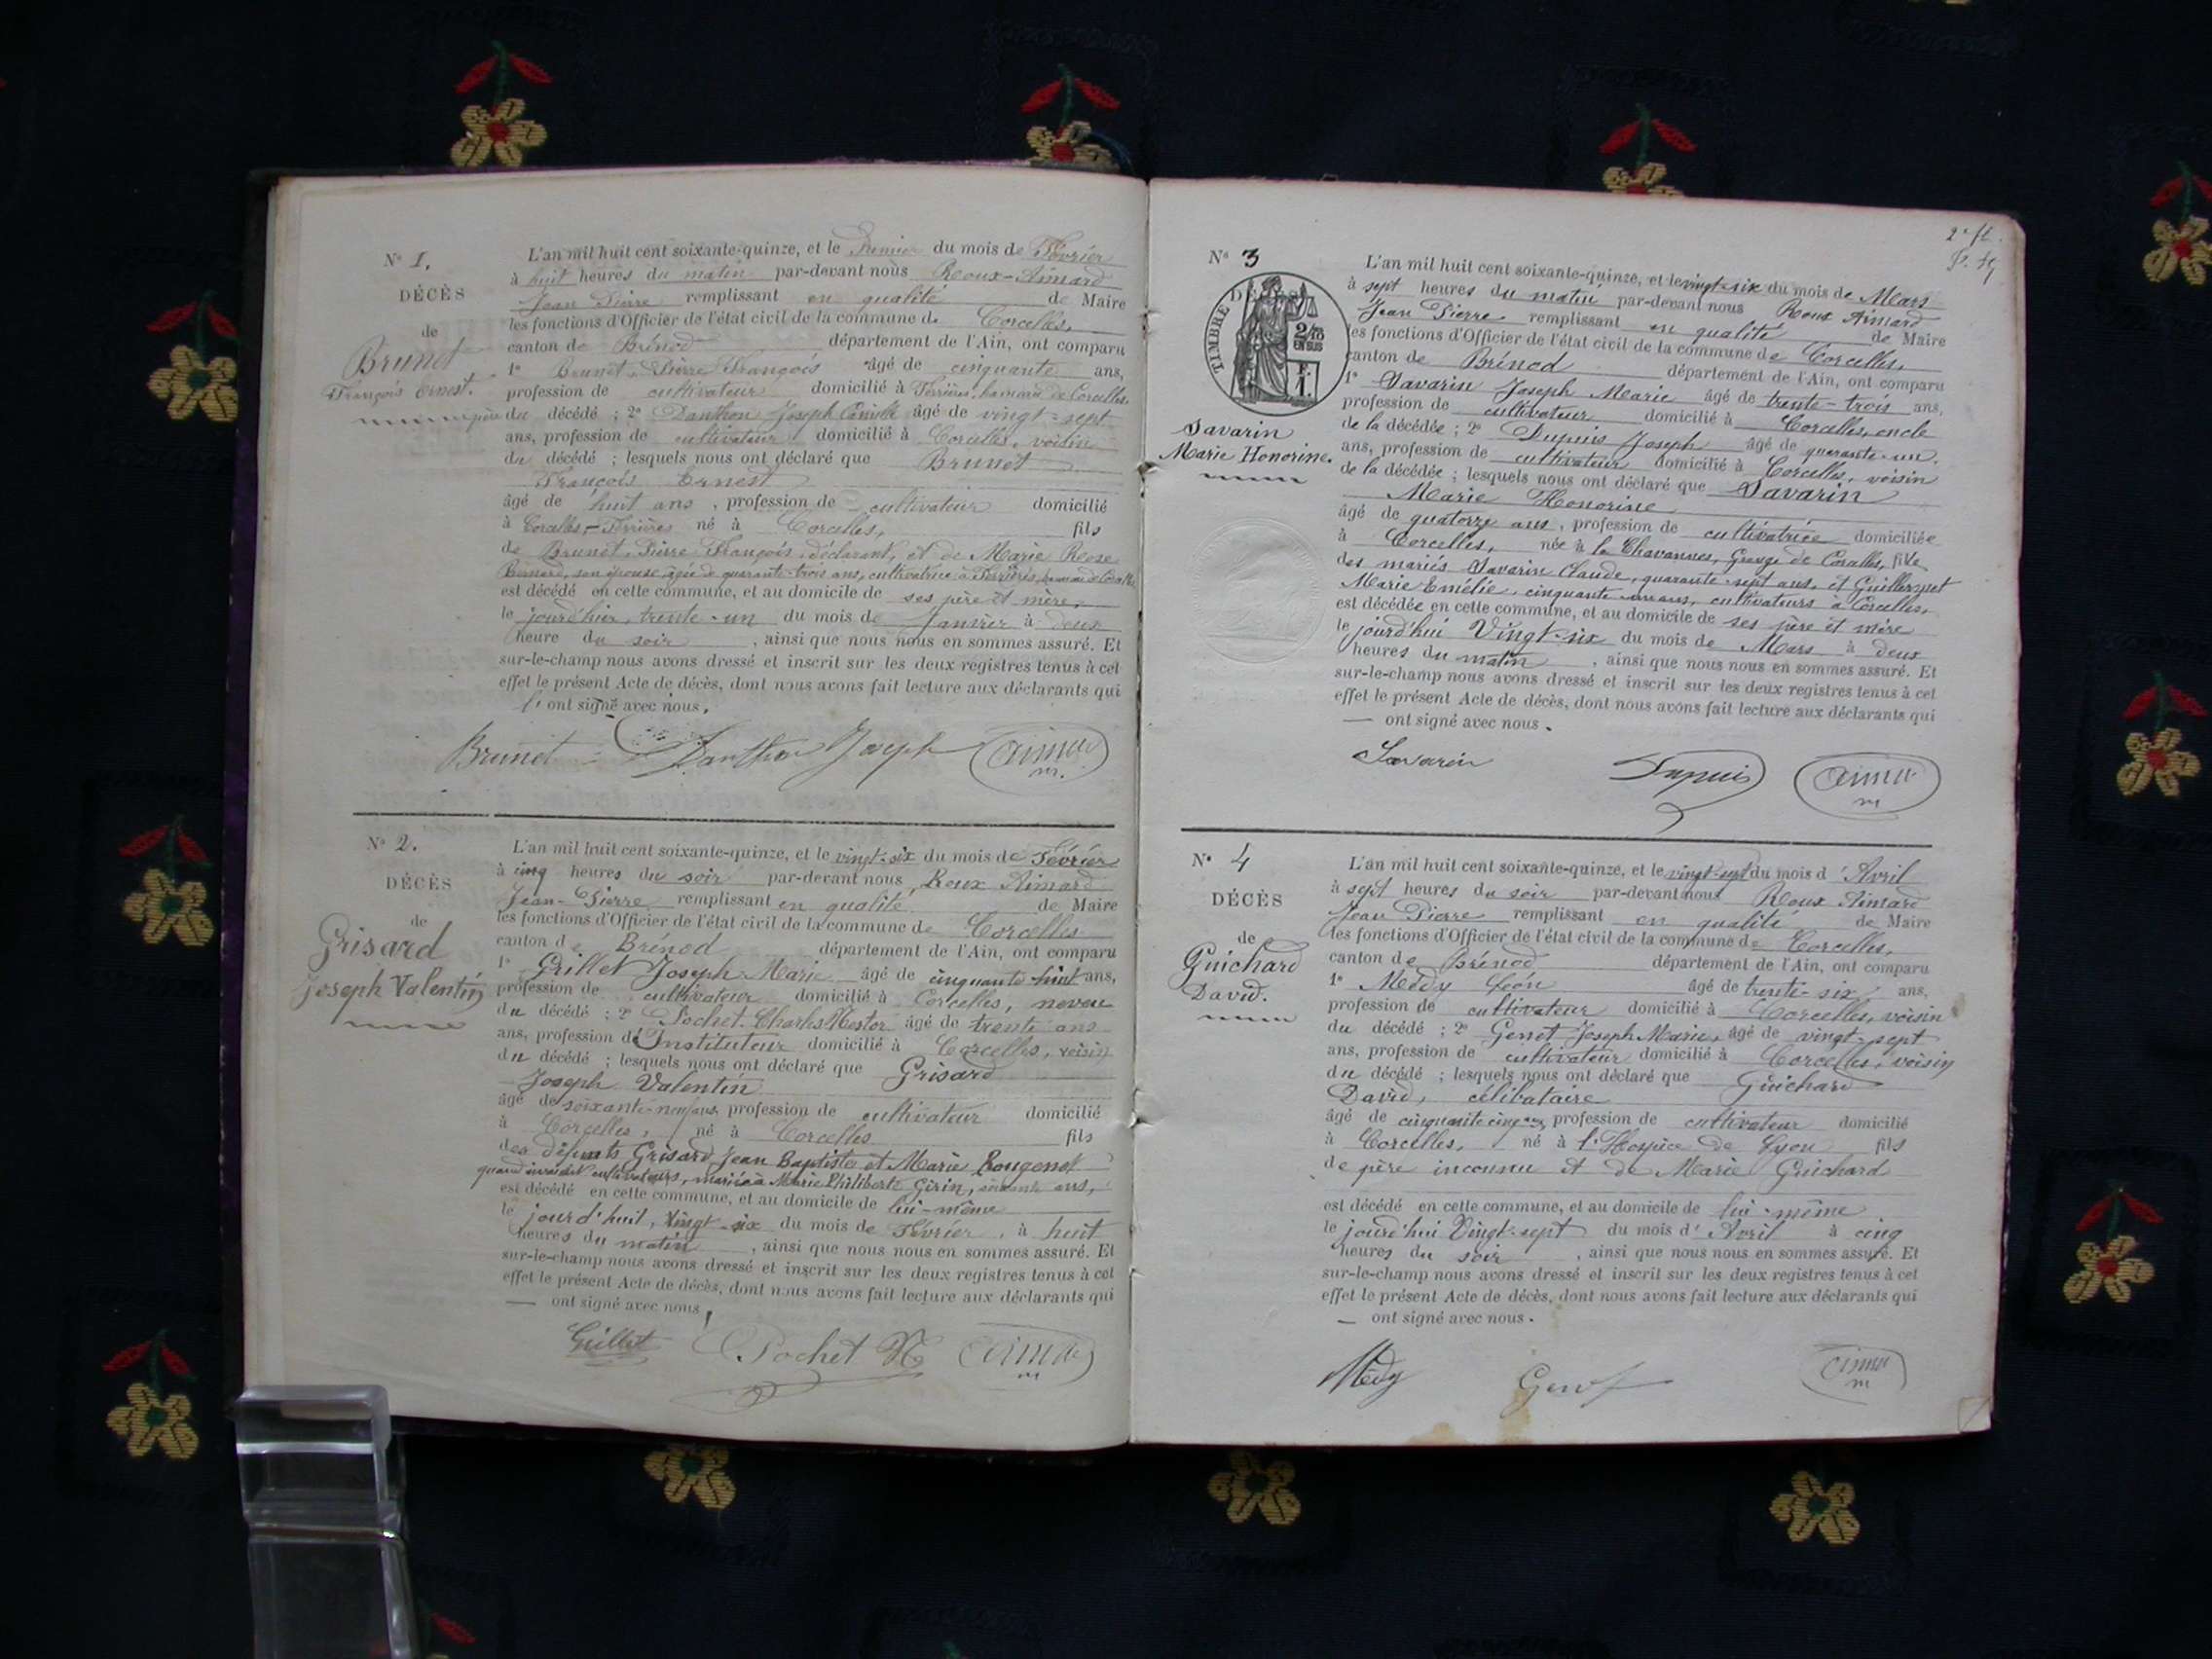 N° 1.
DÉCÈS
de
Brunet
François Ernest.
L'an mil huit cent soixante-quinze, et le Premier du mois de Février
à huit heures du matin par-devant nous Roux-Aimard
Jean Pierre remplissant en qualité de Maire
les fonctions d'Officier de l'état civil de la commune de Corcelles,
canton de Brénod département de l'Ain, ont comparu
1° Brunet Pierre François âgé de cinquante ans,
profession de cultivateur domicilié à Ferrières, hameau de Corcelles,
père du décédé ; 2° Danthon Joseph Camille âgé de vingt-sept
ans, profession de cultivateur domicilié à Corcelles, voisin
du décédé ; lesquels nous ont déclaré que Brunet
François Ernest
âgé de huit ans, profession de cultivateur domicilié
à Corcelles-Ferrières né à Corcelles, fils
de Brunet Pierre François, déclarant, et de Marie Rose
Bernard, son épouse âgée de quarante-trois ans, cultivatrice à Ferrières, hameau de Corcelles
est décédé en cette commune, et au domicile de ses père et mère,
le jourd'hier, trente-un du mois de Janvier à deux
heure du soir, ainsi que nous nous en sommes assuré. Et
sur-le-champ nous avons dressé et inscrit sur les deux registres tenus à cet
effet le présent Acte de décès, dont nous avons fait lecture aux déclarants qui
ont signé avec nous.
Brunet Danthon Joseph Aimard
m.
N° 2.
DÉCÈS
de
Grisard
Joseph Valentin
L'an mil huit cent soixante-quinze, et le vingt-six du mois de Février
à cinq heures du soir par-devant nous Roux Aimard
Jean-Pierre remplissant en qualité de Maire
les fonctions d'Officier de l'état civil de la commune de Corcelles
canton de Brénod département de l'Ain, ont comparu
1° Grillet Joseph Marie âgé de cinquante-huit ans,
profession de cultivateur domicilié à Corcelles, neveu
du décédé ; 2° Pochet Charles Nestor âgé de trente ans
ans, profession d'Instituteur domicilié à Corcelles, voisin
du décédé ; lesquels nous ont déclaré que Grisard
Joseph Valentin
âgé de soixante-neuf ans, profession de cultivateur domicilié
à Corcelles, né à Corcelles fils
des défunts Grisard Jean Baptiste et Marie Rougemot
quand vivaient cultivateurs, marié à Marie Philiberte Girin, soixante ans,
est décédé en cette commune, et au domicile de lui-même
le jourd'hui, vingt-six du mois de Février, à huit
heures du matin, ainsi que nous nous en sommes assuré. Et
sur-le-champ nous avons dressé et inscrit sur les deux registres tenus à cet
effet le présent Acte de décès, dont nous avons fait lecture aux déclarants qui
— ont signé avec nous.
Grillet Pochet N Aimard
m
2e f.
N° 3
DÉCÈS
TIMBRE
2/10
EN SUS
F.
1.
Savarin
Marie Honorine.
L'an mil huit cent soixante-quinze, et le vingt-six du mois de Mars
à sept heures du matin par-devant nous Roux Aimard
Jean Pierre remplissant en qualité de Maire
les fonctions d'Officier de l'état civil de la commune de Corcelles,
canton de Brénod département de l'Ain, ont comparu
1° Savarin Joseph Marie âgé de trente-trois ans,
profession de cultivateur domicilié à Corcelles, oncle
de la décédée ; 2° Dupuis Joseph âgé de quarante-un
ans, profession de cultivateur domicilié à Corcelles, voisin
de la décédée ; lesquels nous ont déclaré que Savarin
Marie Honorine
âgé de quatorze ans, profession de cultivatrice domiciliée
à Corcelles, née à la Chavannes, Grange de Corcelles, fille
des mariés Savarin Claude, quarante-sept ans, et Guillermet
Marie Emélie, cinquante-un ans, cultivateurs à Corcelles,
est décédée en cette commune, et au domicile de ses père et mère
le jourd'hui Vingt-six du mois de Mars à deux
heures du matin, ainsi que nous nous en sommes assuré. Et
sur-le-champ nous avons dressé et inscrit sur les deux registres tenus à cet
effet le présent Acte de décès, dont nous avons fait lecture aux déclarants qui
— ont signé avec nous.
Savarin Dupuis Aimard
m
N° 4
DÉCÈS
de
Guichard
David.
L'an mil huit cent soixante-quinze, et le vingt-sept du mois d'Avril
à sept heures du soir par-devant nous Roux Aimard
Jean Pierre remplissant en qualité de Maire
les fonctions d'Officier de l'état civil de la commune de Corcelles,
canton de Brénod département de l'Ain, ont comparu
1° Médy Léon âgé de trente-six ans,
profession de cultivateur domicilié à Corcelles, voisin
du décédé ; 2° Genet Joseph Marie, âgé de vingt-sept
ans, profession de cultivateur domicilié à Corcelles, voisin
du décédé ; lesquels nous ont déclaré que Guichard
David, célibataire
âgé de cinquante cinq ans, profession de cultivateur domicilié
à Corcelles, né à l'Hospice de Lyon fils
de père inconnu et de Marie Guichard
est décédé en cette commune, et au domicile de lui-même
le jourd'hui Vingt-sept du mois d'Avril à cinq
heures du soir, ainsi que nous nous en sommes assuré. Et
sur-le-champ nous avons dressé et inscrit sur les deux registres tenus à cet
effet le présent Acte de décès, dont nous avons fait lecture aux déclarants qui
— ont signé avec nous.
Médy Genet Aimard
m